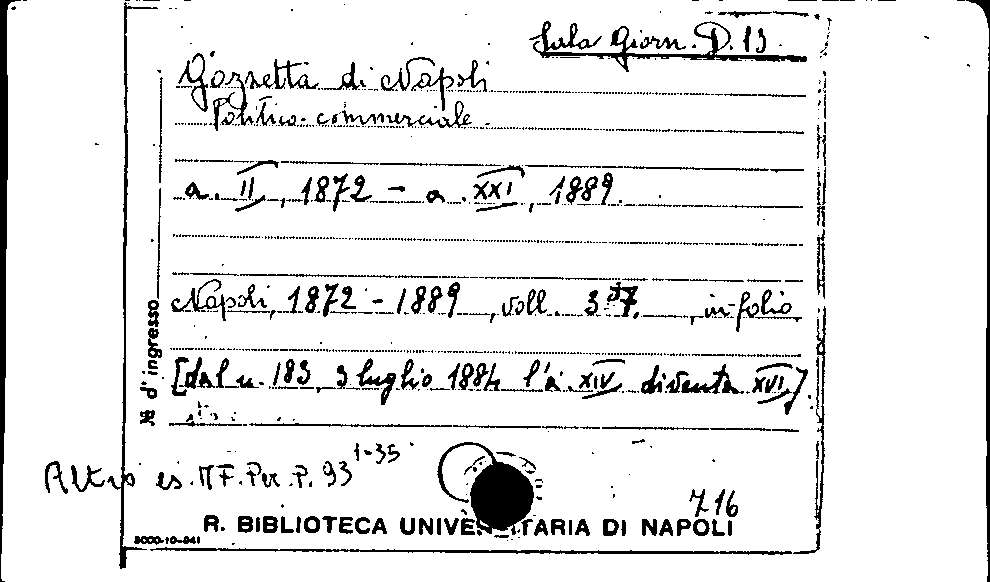 Sala Giorn. D. 13
Gazzetta di Napoli
Politico-commerciale.
a. II, 1872 - a. XXI, 1889.
Napoli, 1872 - 1889, voll. 37, in folio.
[dal n. 183, 3 luglio 1884 l'a. XIV diventa XVI]
N. d'ingresso
Altro es. MF. Per. P. 93 1-35
716
R. BIBLIOTECA UNIVERSITARIA DI NAPOLI
3000-10-941